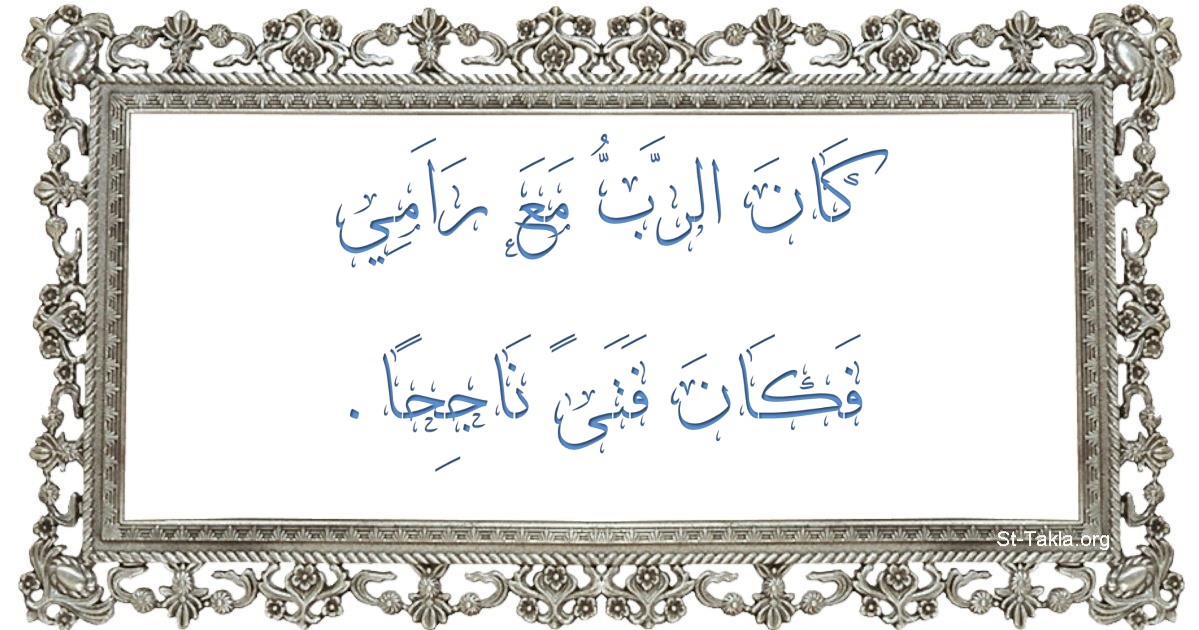 كَانَ الرَّبُّ مَعَ رَامِي
فَكَانَ فَتَىً نَاجِحًا .
St-Takla.org